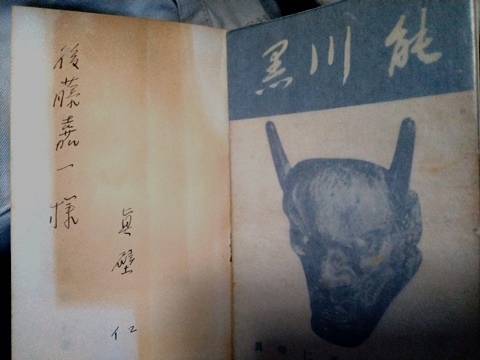 後藤嘉一様
眞壁仁
黑川能